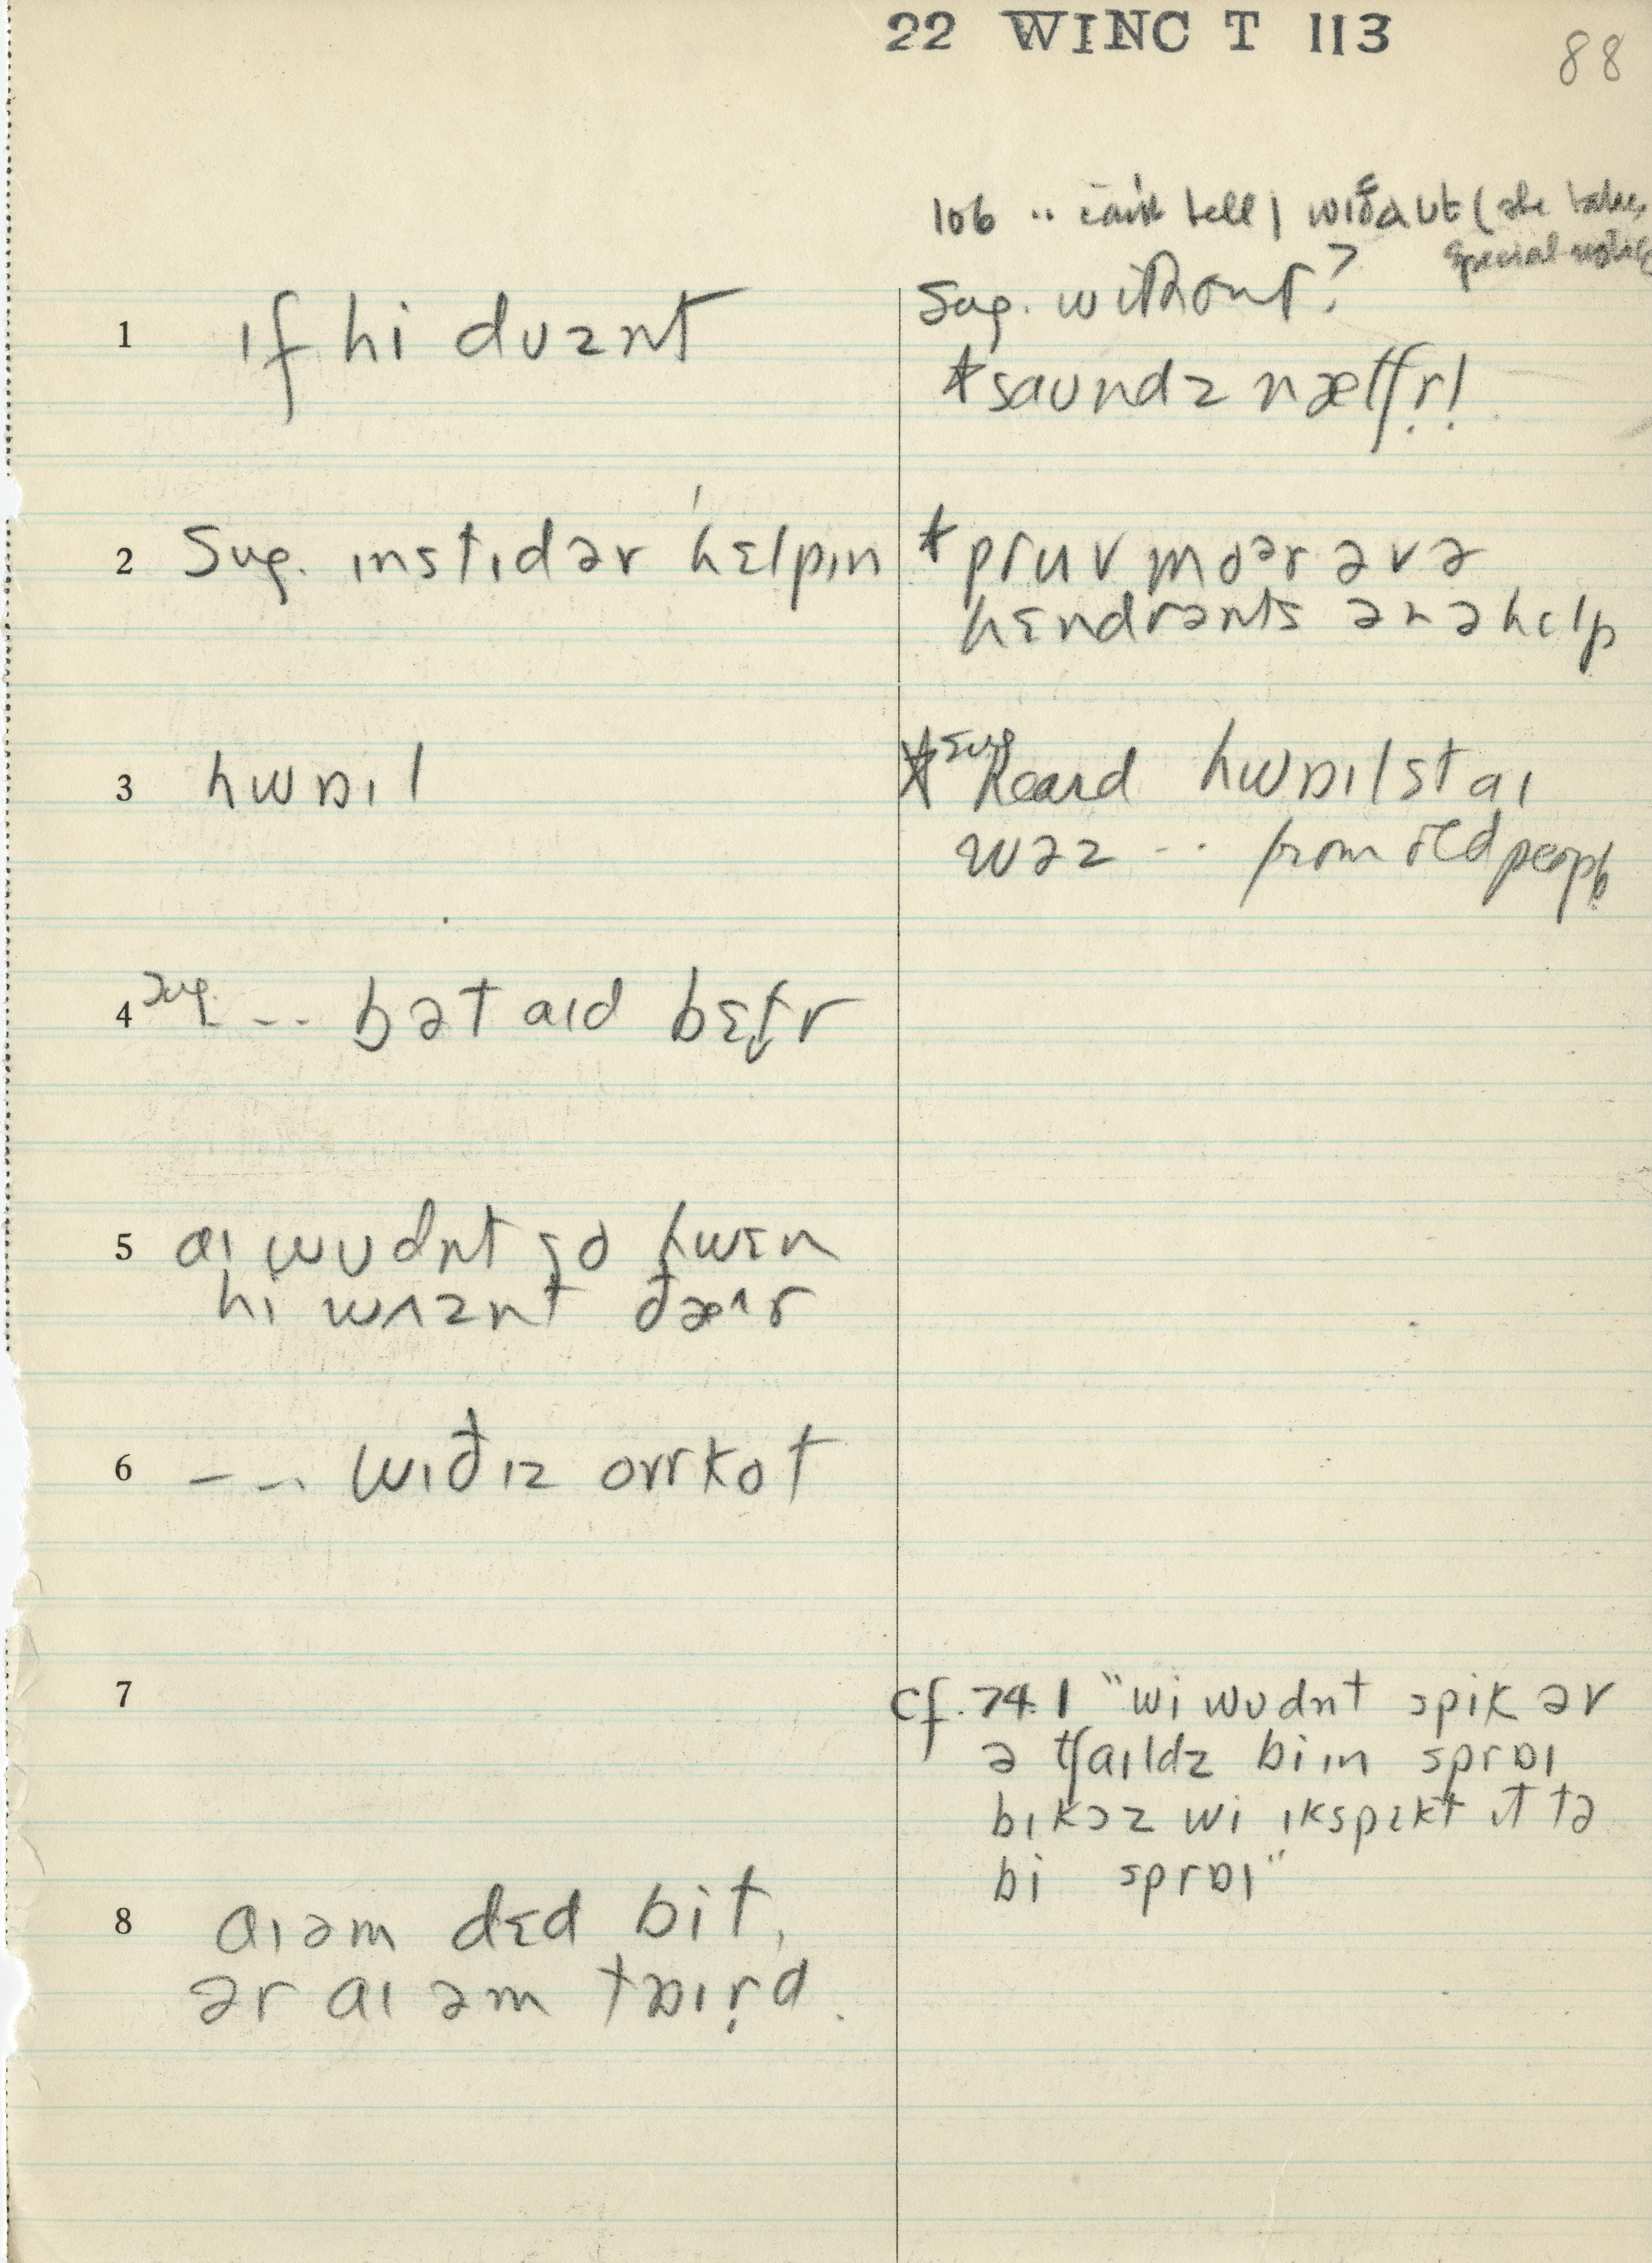 22 WINC T 113
88
106 .. can't tell | wɪðaʊt (she takes
special notice
1 ɪf hi dʊznt
Sug. without?
*saʊndz nætʃr̩!
2 Sug. ɪnstɪdər hɛlpɪn
*pruv moər əvə
hɛndrənts ənəhɛlp
3 hwɒɪl
*sug heard hwɒɪlst aɪ
wəz -- from old people
4 sug. --- bət aɪd bɛt̬r
5 aɪ wʊdnt go hwɛn
hi wʌznt ðæʌr
6 --- wɪðɪz ovrkot
7 cf. 74.1 "wi wʊdnt spik əv
ə tʃaɪldz biɪn sprɒɪ
bɪkɔz wi ɪkspɛkt ɪt tə
bi sprɒɪ"
8 aɪəm dɛd bit,
ər aɪ əm tɒɪr̩d.